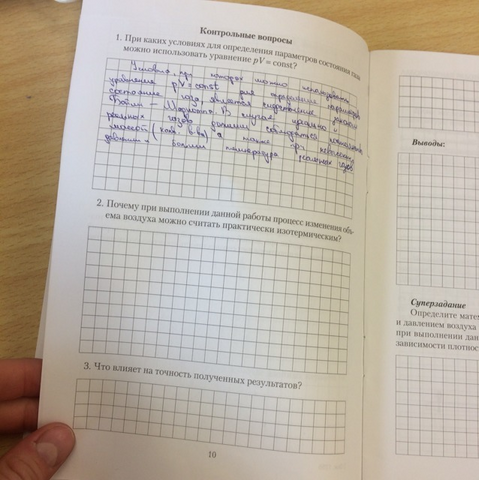 Контрольные вопросы
1. При каких условиях для определения параметров состояния газа
можно использовать уравнение pV = const?
Условия при которых можно использовать
уравнение pV = const для определения параметров
состояние газа, является
Бойля – Мариотта. В случае,
реальных газов должны соблюдаться
(кол. в-ва), а также при
давлениях температура реальных газов
2. Почему при выполнении данной работы процесс изменения объ-
ема воздуха можно считать практически изотермическим?
3. Что влияет на точность полученных результатов?
10
Выводы:
Суперзадание
Определите мате
и давлением воздуха
при выполнении дан
зависимости плотнос